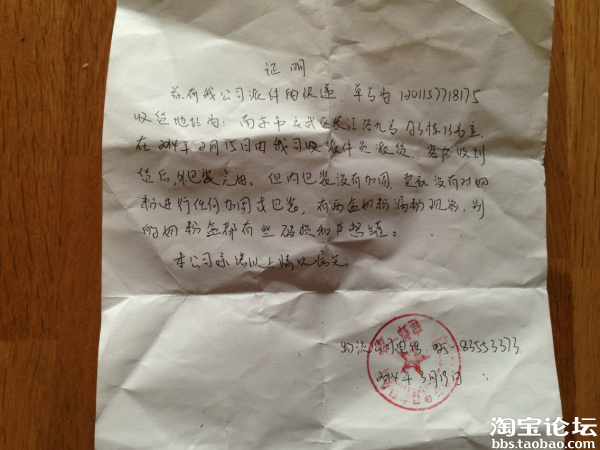 证明
兹有我公司派件的快递 单号为 1201157718175
收货地址为: 南京市玄武区长江路九号
在2014年2月15日由我司收派件员派送, 客户收到
货后, 外包装完好、但内包装没有加固, 更没有对奶
粉进行任何加固或包装, 有两盒奶粉漏粉现象, 别
的奶粉盒都有些破损和
本公司承诺以上情况属实。
物流公司电话 83553373
2014年3月19日
淘宝论坛
bbs.taobao.com